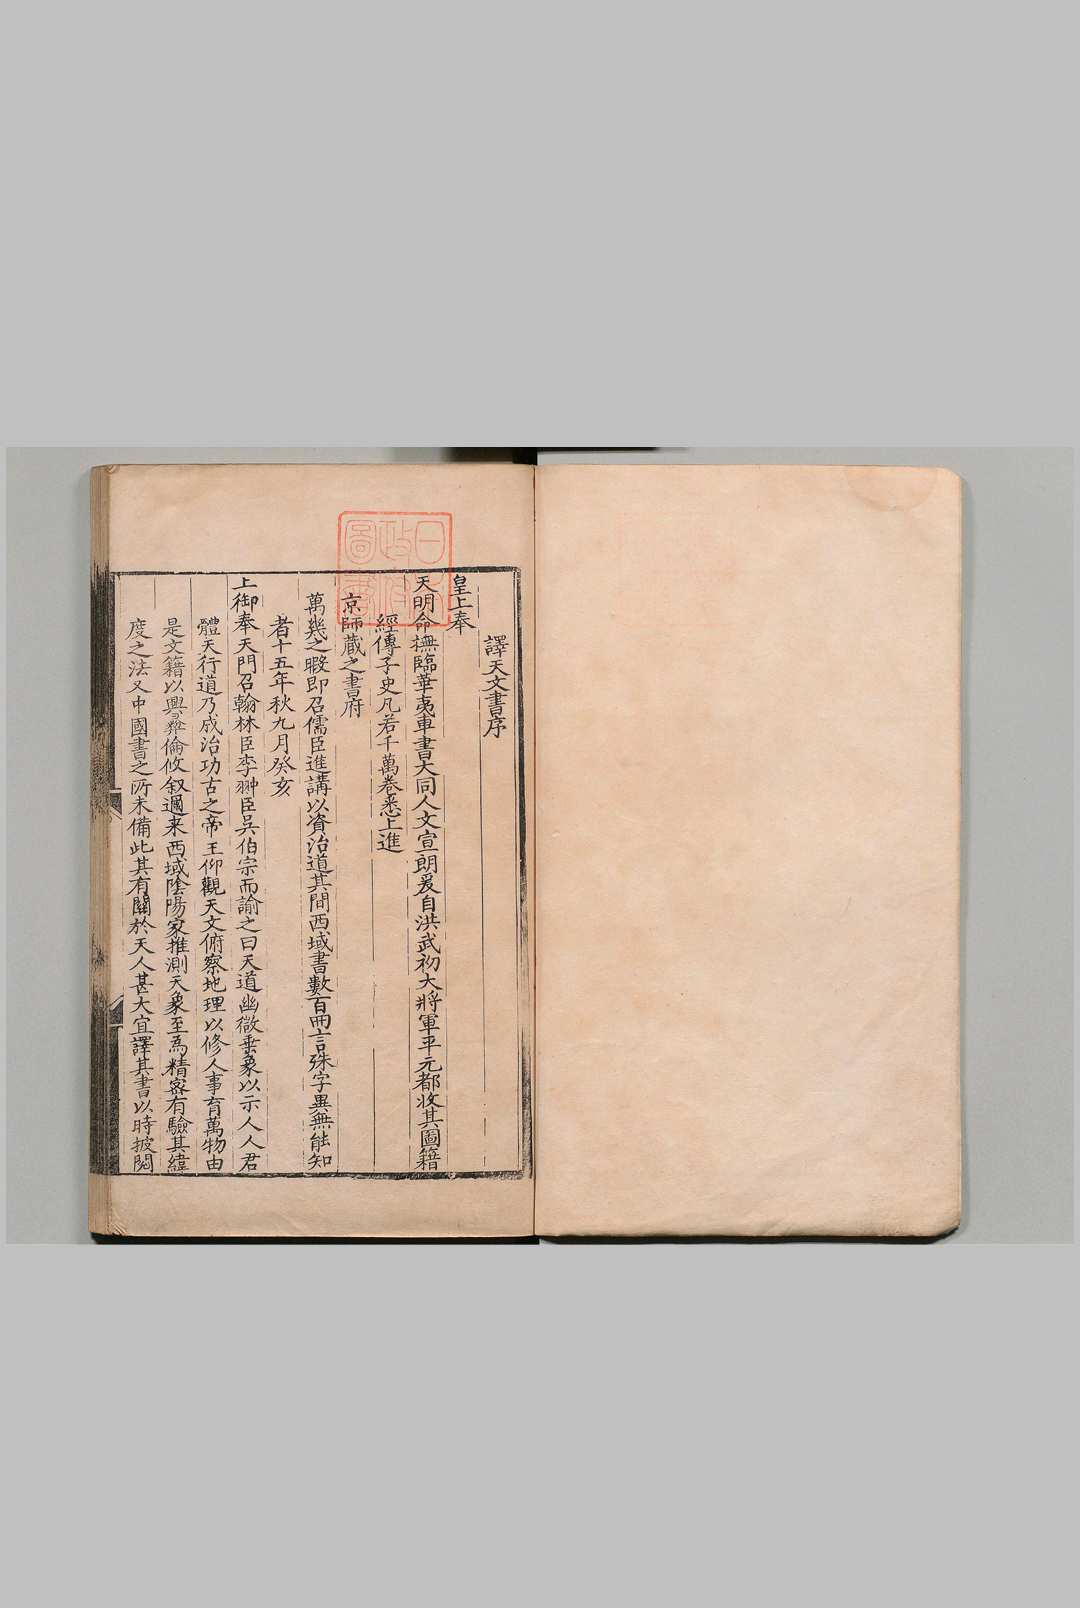 譯天文書序
皇上奉
天明命撫臨華夷車書大同人文宣朗爰自洪武初大將軍平元都收其圖籍
經傳子史凡若千萬卷悉上進
京師藏之書府
萬幾之暇即召儒臣進講以資治道其間西域書數百冊言殊字異無能知
者十五年秋九月癸亥
上御奉天門召翰林臣李翀臣吳伯宗而諭之曰天道幽微垂象以示人人君
體天行道乃成治功古之帝王仰觀天文俯察地理以修人事育萬物由
是文籍以興彜倫攸叙邇来西域陰陽家推測天象至為精密有驗其緯
度之法又中國書之所未備此其有關於天人甚大宜譯其書以時披閱
日本
政府
圖書